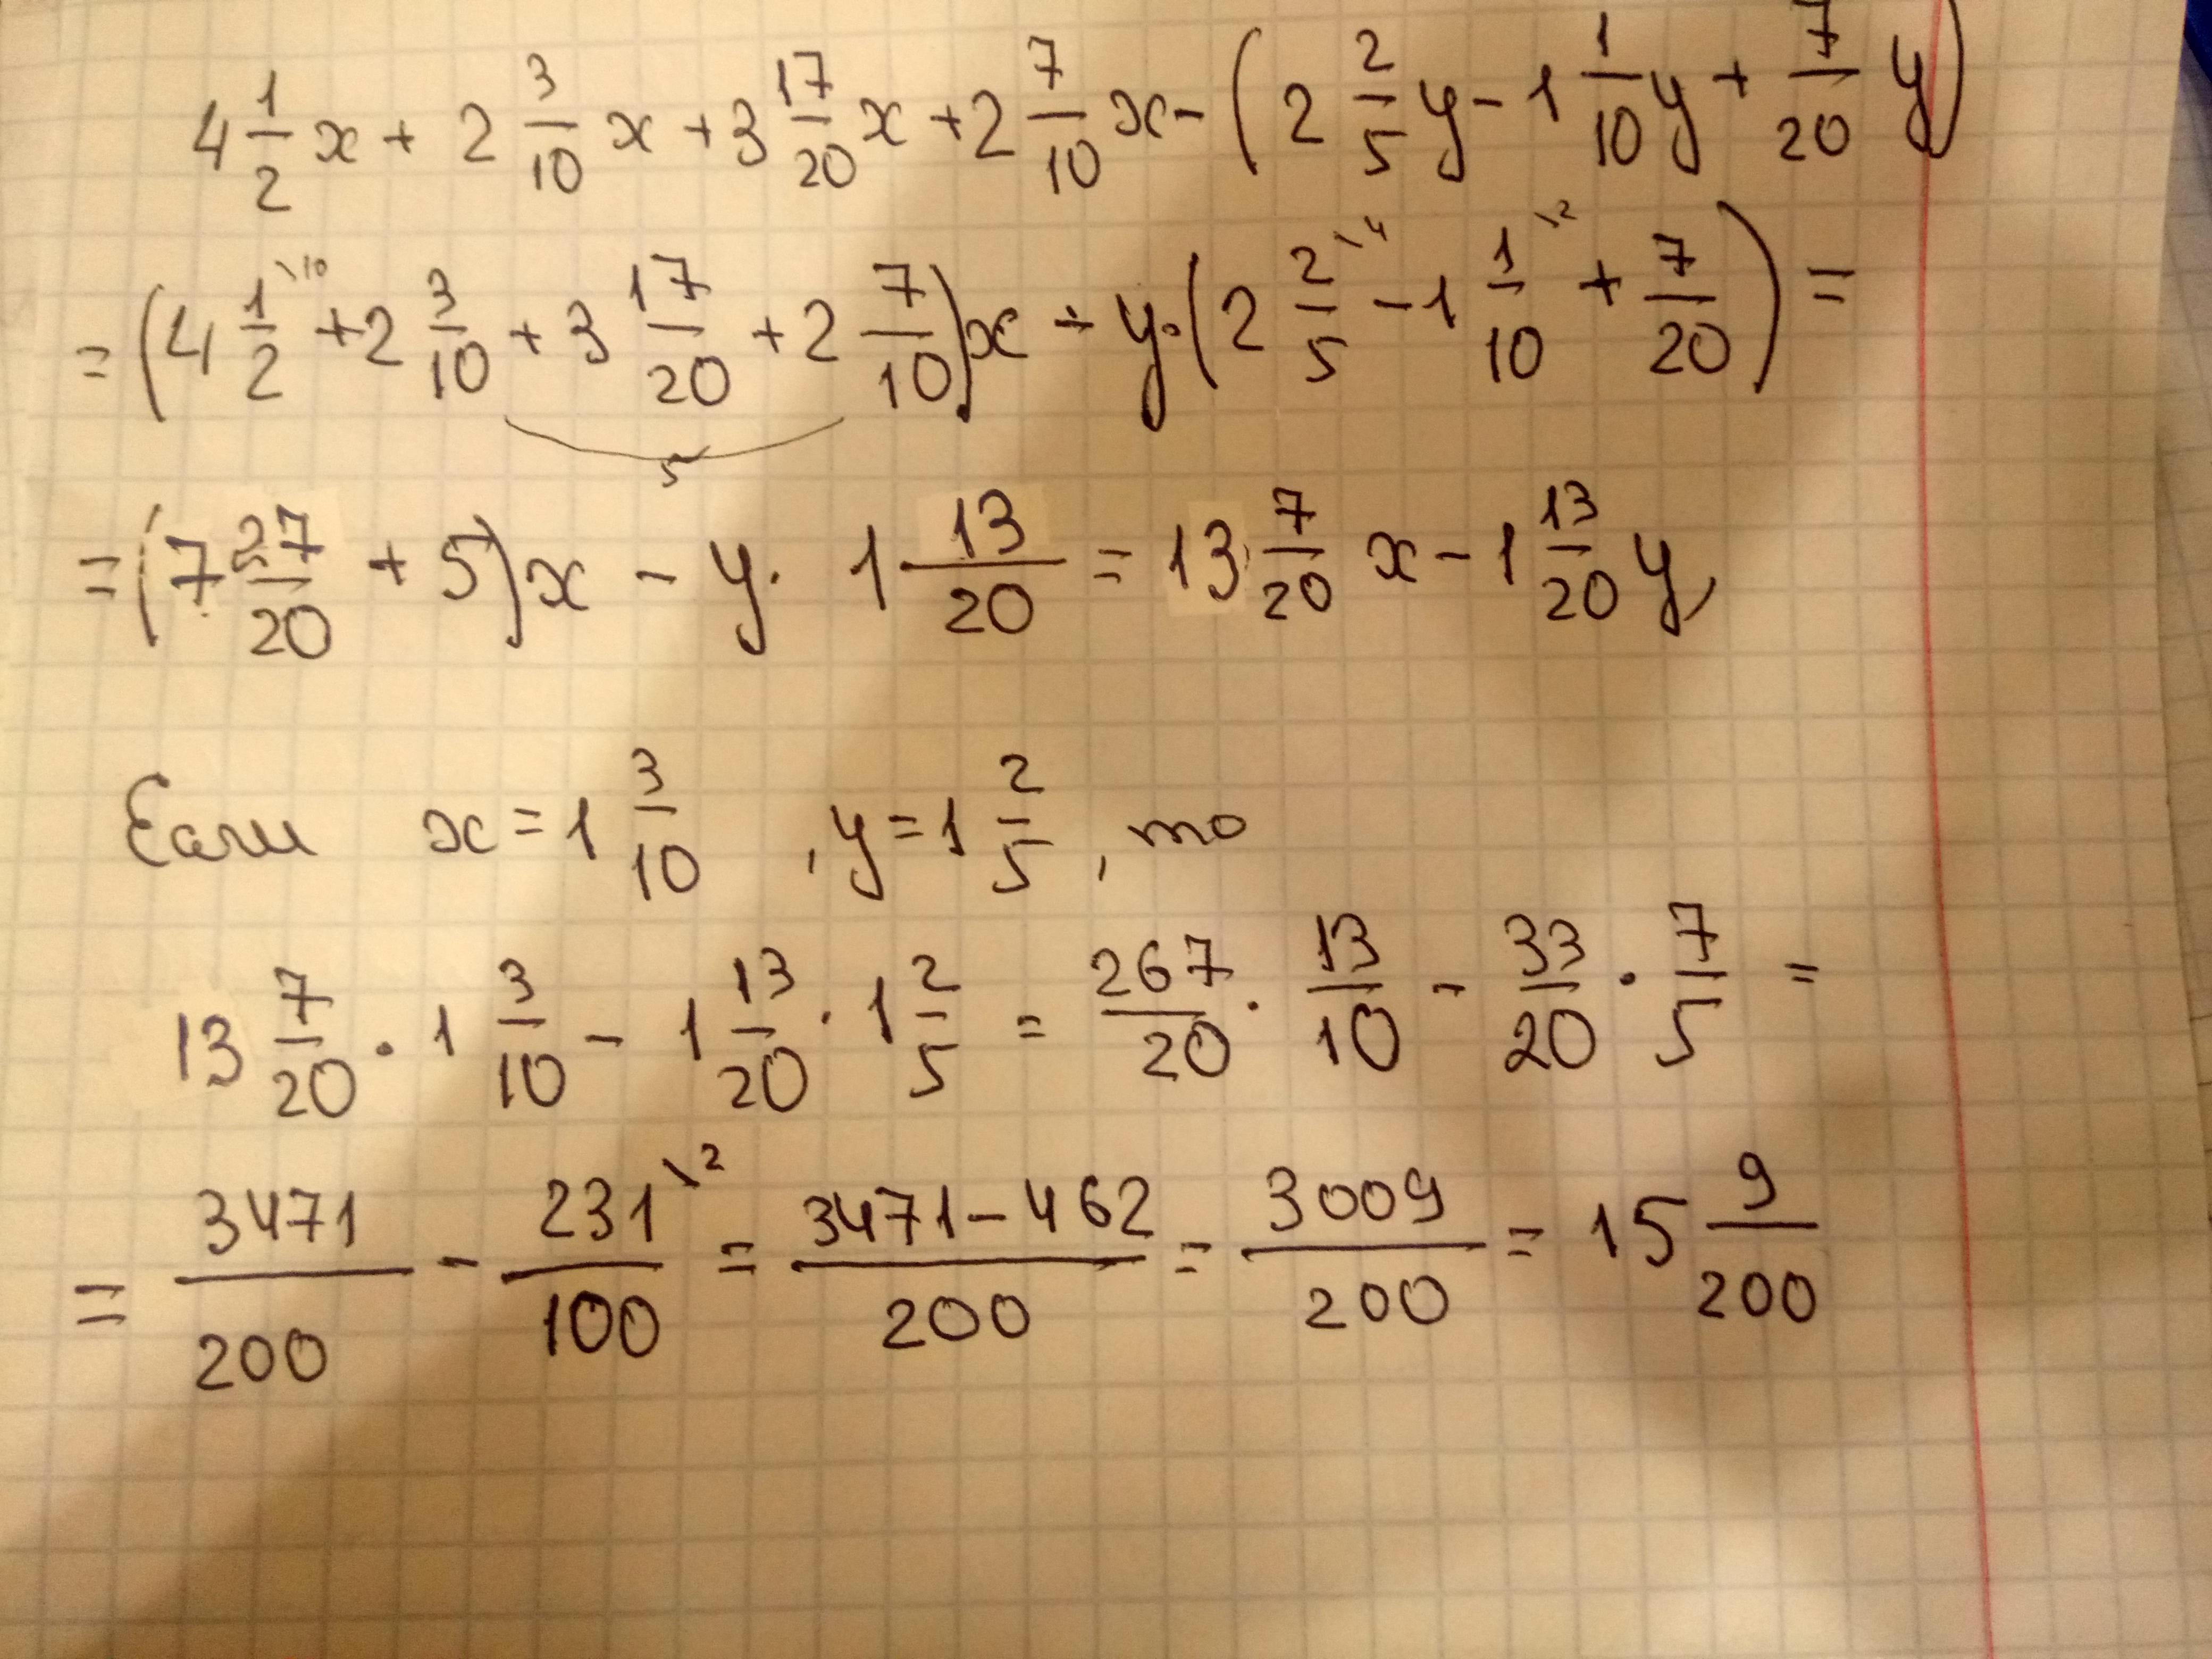 4 1/2 x + 2 3/10 x + 3 17/20 x + 2 7/10 x - (2 2/5 y - 1 1/10 y + 7/20 y)
= (4 1/2 \10 + 2 3/10 + 3 17/20 + 2 7/10)x + y·(2 2/5 \4 - 1 1/10 \2 + 7/20) =
5
= (7 27/20 + 5)x - y · 1 13/20 = 13 7/20 x - 1 13/20 y
Если x = 1 3/10 , y = 1 2/5 , то
13 7/20 · 1 3/10 - 1 13/20 · 1 2/5 = 267/20 · 13/10 - 33/20 · 7/5 =
= 3471/200 - 231/100 \2 = 3471-462/200 = 3009/200 = 15 9/200